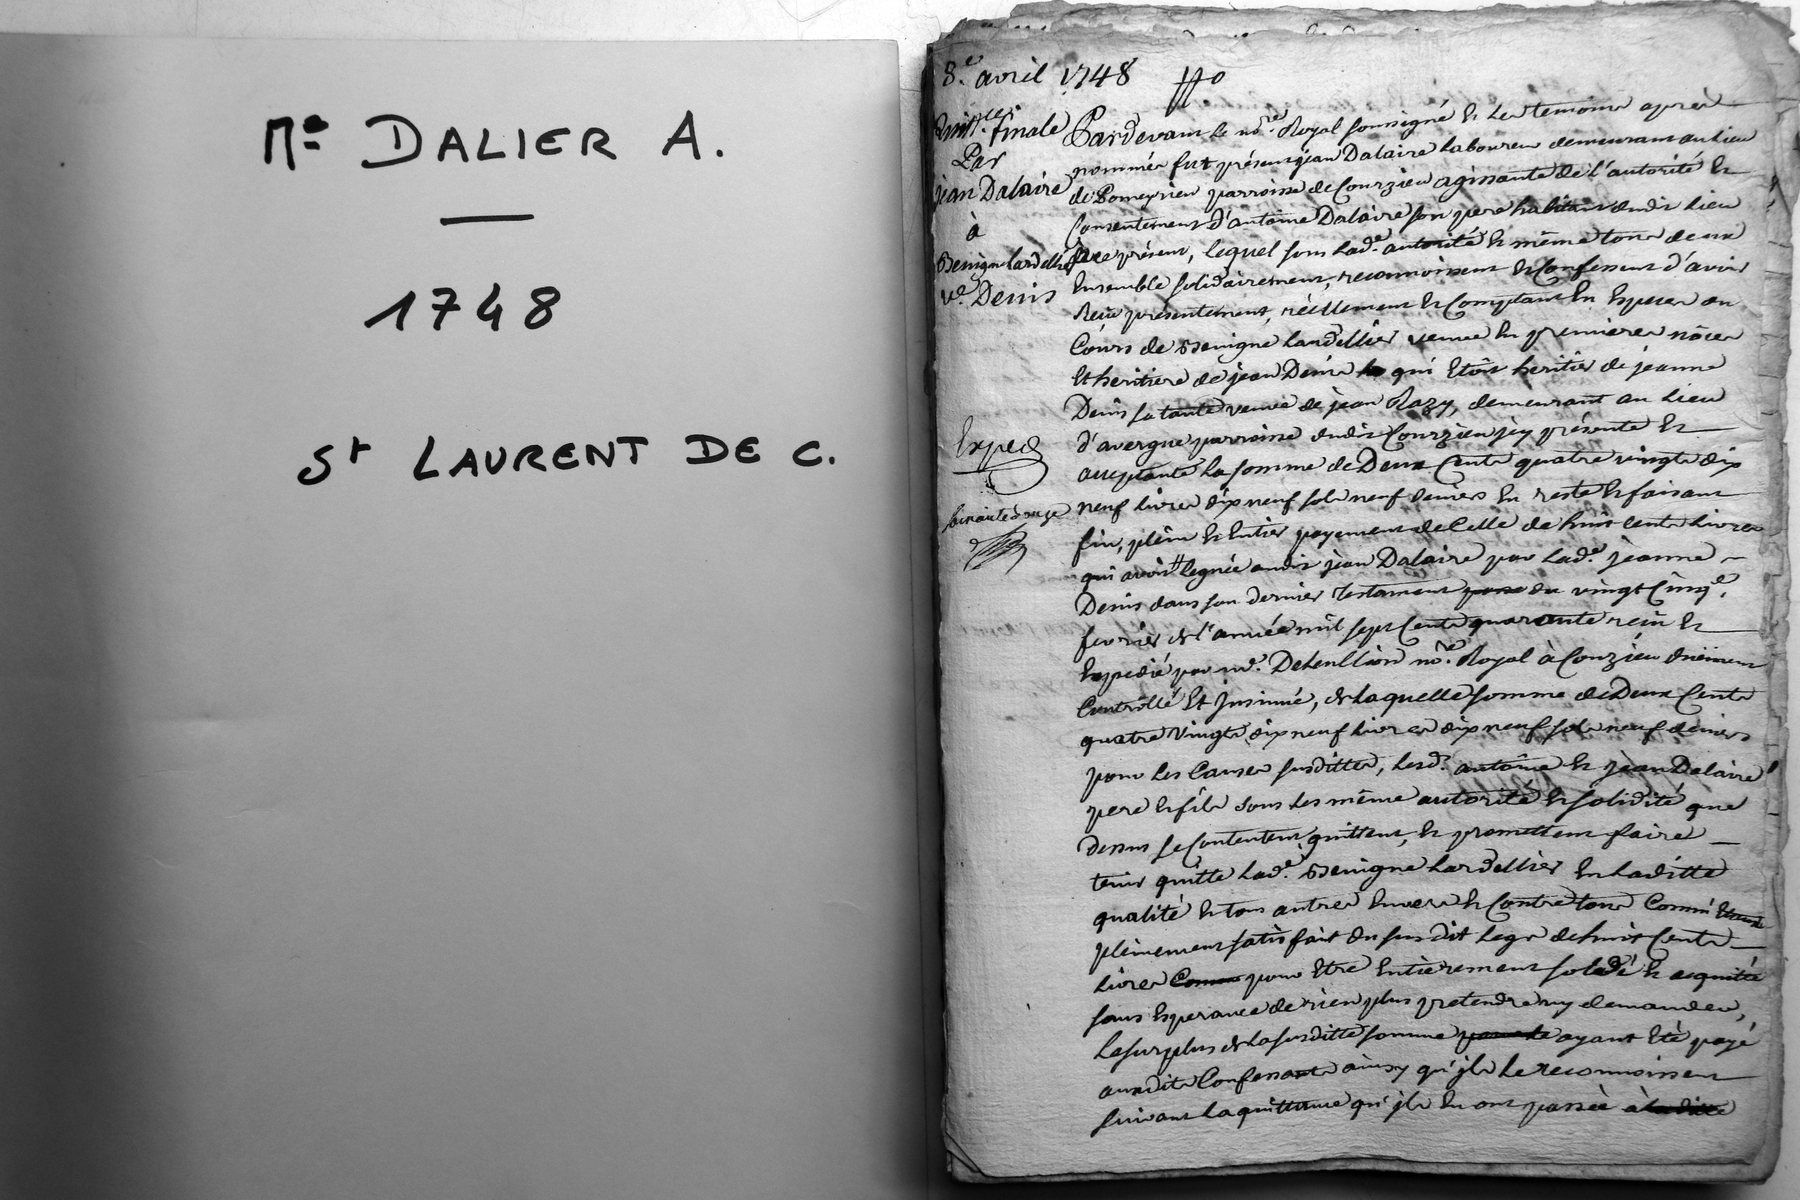 Me DALIER A.
1748
St LAURENT DE C.
8.e avril 1748
Quitt.ce finale
Par
jean Dalaire
à
Benigne Lardellier
v.e Denis
Exped
soixante
Pardevant le no.re Royal soussigné & les temoins après
nommés fut présent jean Dalaire laboureur demeurant au lieu
de Pomeyrieu parroisse de Courzieu agissante de l'autorité &
Consentement d'antoine Dalaire son pere habitant dudit lieu
présent, lequel sous lad.e autorité & même tous deux
Ensemble solidairement, reconnoissent & Confessent d'avoir
Reçu présentement, réellement & Comptant En Especes du
Cours de Benigne Lardellier veuve En premieres nôces
Et heritiere de jean Denis qui Etoit heritier de jeanne
Denis sa tante veuve de jean Razy, demeurant au lieu
d'avergne parroisse dudit Courzieu jcy présente &
acceptante la somme de Deux Cents quatre vingts dix
neuf livres dix neuf sols neuf deniers En reste & faisant
fin, plein & Entier payement de Celle de huit Cents livres
qui avoit legüée audit jean Dalaire par lad.e jeanne
Denis dans son dernier testament du vingt Cinq.e
fevrier de l'année mil sept Cents quarante reçu &
Expedié par m.e Delullion no.re Royal à Couzieu düement
Controllé Et Jnsinué, de laquelle somme de Deux Cents
quatre Vingts dix neuf livres dix neuf sols neuf deniers
pour les Causes susdittes, lesd.s antoine & jean Dalaire
pere & fils sous les même autorité & solidité que
dessus se Contentent, quittent, & promettent faire
tenir quitte lad.e Benigne Lardellier En laditte
qualité & tous autres Envers & Contre tous Comme
pleinement satisfait du susdit legs de huit Cents
livres pour Etre Entièrement soldé & acquitté
sans Esperance de rien plus pretendre ny demander,
le surplus de la susditte somme ayant Eté payé
auxdits Confessants ainsy qu'jls le reconnoissent
suivant la quittance qu'jls En ont passée à